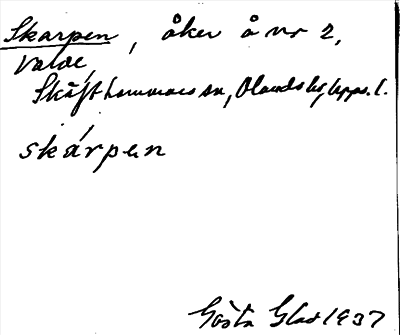 Skarpen, åker å nr 2,
Valde,
Skäfthammars sn, Olands hd, Upps. l.
skárpen
Gösta Glas 1937